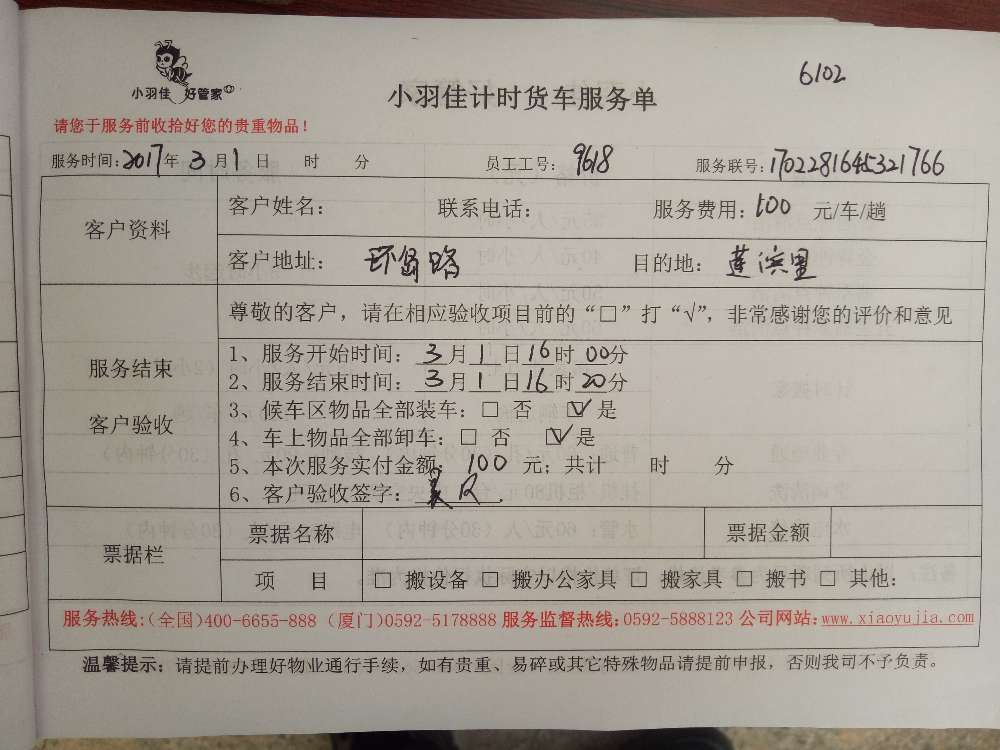 6102
小羽佳 好管家
小羽佳计时货车服务单
请您于服务前收拾好您的贵重物品！
服务时间：2017年 3月1日 时 分 员工工号：9618 服务联号：1702281645321766
客户资料
客户姓名： 联系电话： 服务费用：100 元/车/趟
客户地址： 环岛路 目的地： 莲滨里
服务结束
客户验收
尊敬的客户，请在相应验收项目前的“□”打“√”，非常感谢您的评价和意见
1、服务开始时间：3月1日16时00分
2、服务结束时间：3月1日16时20分
3、候车区物品全部装车：□ 否 ☑ 是
4、车上物品全部卸车：□ 否 ☑ 是
5、本次服务实付金额：100 元；共计 时 分
6、客户验收签字：
票据栏
票据名称 票据金额
项 目 □ 搬设备 □ 搬办公家具 □ 搬家具 □ 搬书 □ 其他：
服务热线：（全国）400-6655-888（厦门）0592-5178888 服务监督热线：0592-5888123 公司网站：www.xiaoyujia.com
温馨提示：请提前办理好物业通行手续，如有贵重、易碎或其它特殊物品请提前申报，否则我司不予负责。